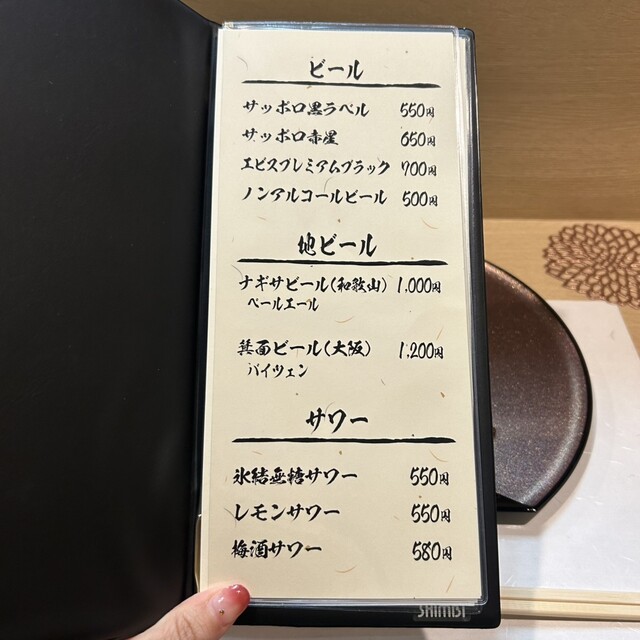 ビール
サッポロ黒ラベル 550円
サッポロ赤星 650円
エビスプレミアムブラック 700円
ノンアルコールビール 500円
地ビール
ナギサビール(和歌山) 1,000円
ペールエール
箕面ビール(大阪) 1,200円
バイツェン
サワー
氷結無糖サワー 550円
レモンサワー 550円
梅酒サワー 580円
SHIMBI